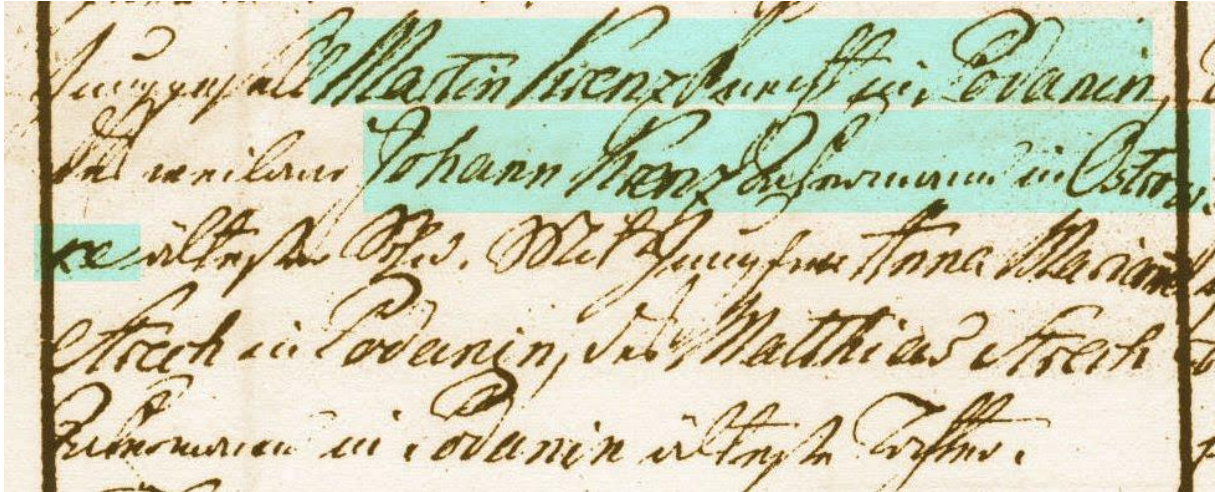 Junggesell Martin Krenz Knecht in Podanin,
des weiland Johann Krenz Ackermann in Ostrow¬
ke ältester Sohn. Mit Jungfer Anna Mariane
Strech in Podanin, des Matthias Strech
Ackermann in Podanin älteste Tochter.